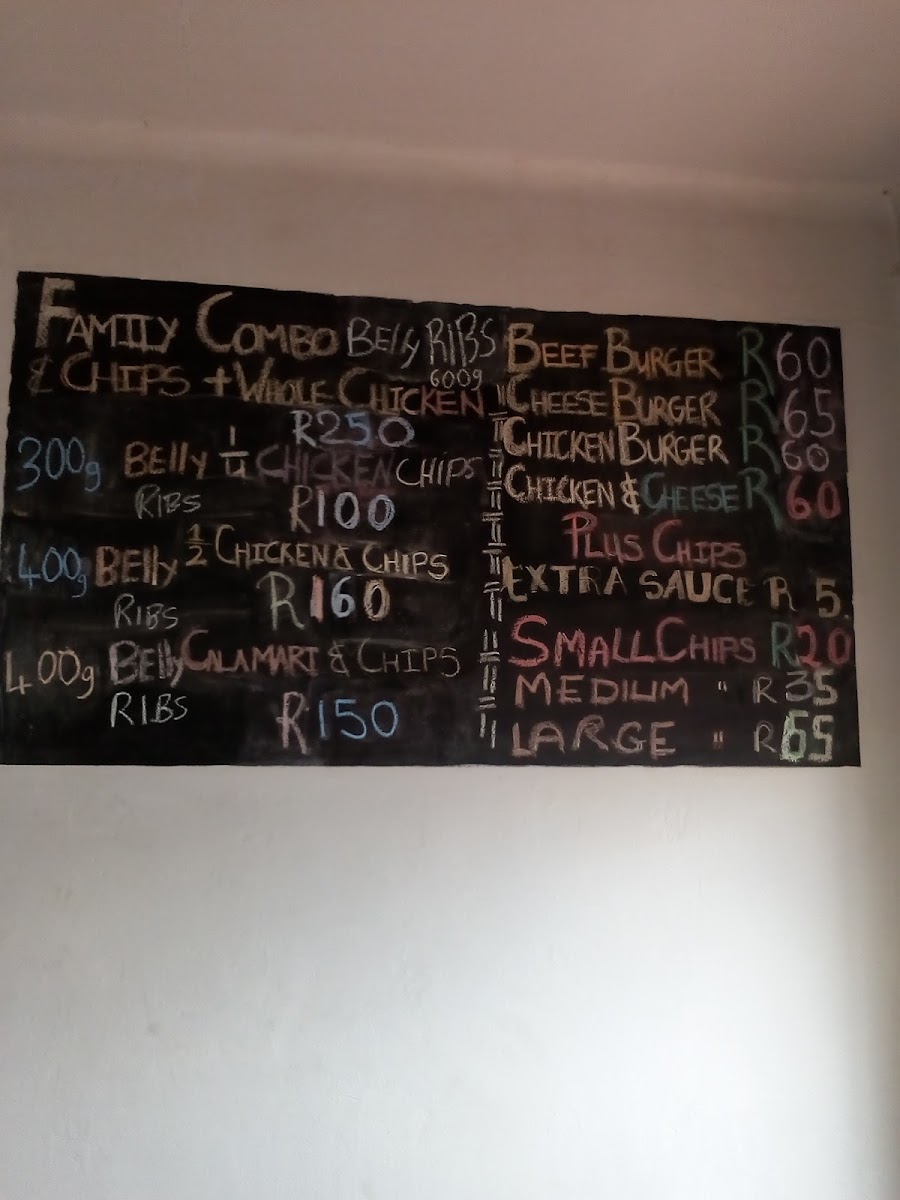 FAMILY COMBO Belly RIBS
& CHIPS + WHOLE CHICKEN 600g
R250
300g BELLY 1/4 CHICKEN CHIPS
RIBS R100
400g BElly 1/2 CHICKEN & CHIPS
RIBS R160
400g Belly CALAMARI & CHIPS
RIBS R150
BEEF BURGER R60
CHEESE BURGER R65
CHICKEN BURGER R60
CHICKEN & CHEESE R60
PLUS CHIPS
EXTRA SAUCE R 5
SMALL CHIPS R20
MEDIUM " R35
LARGE " R65